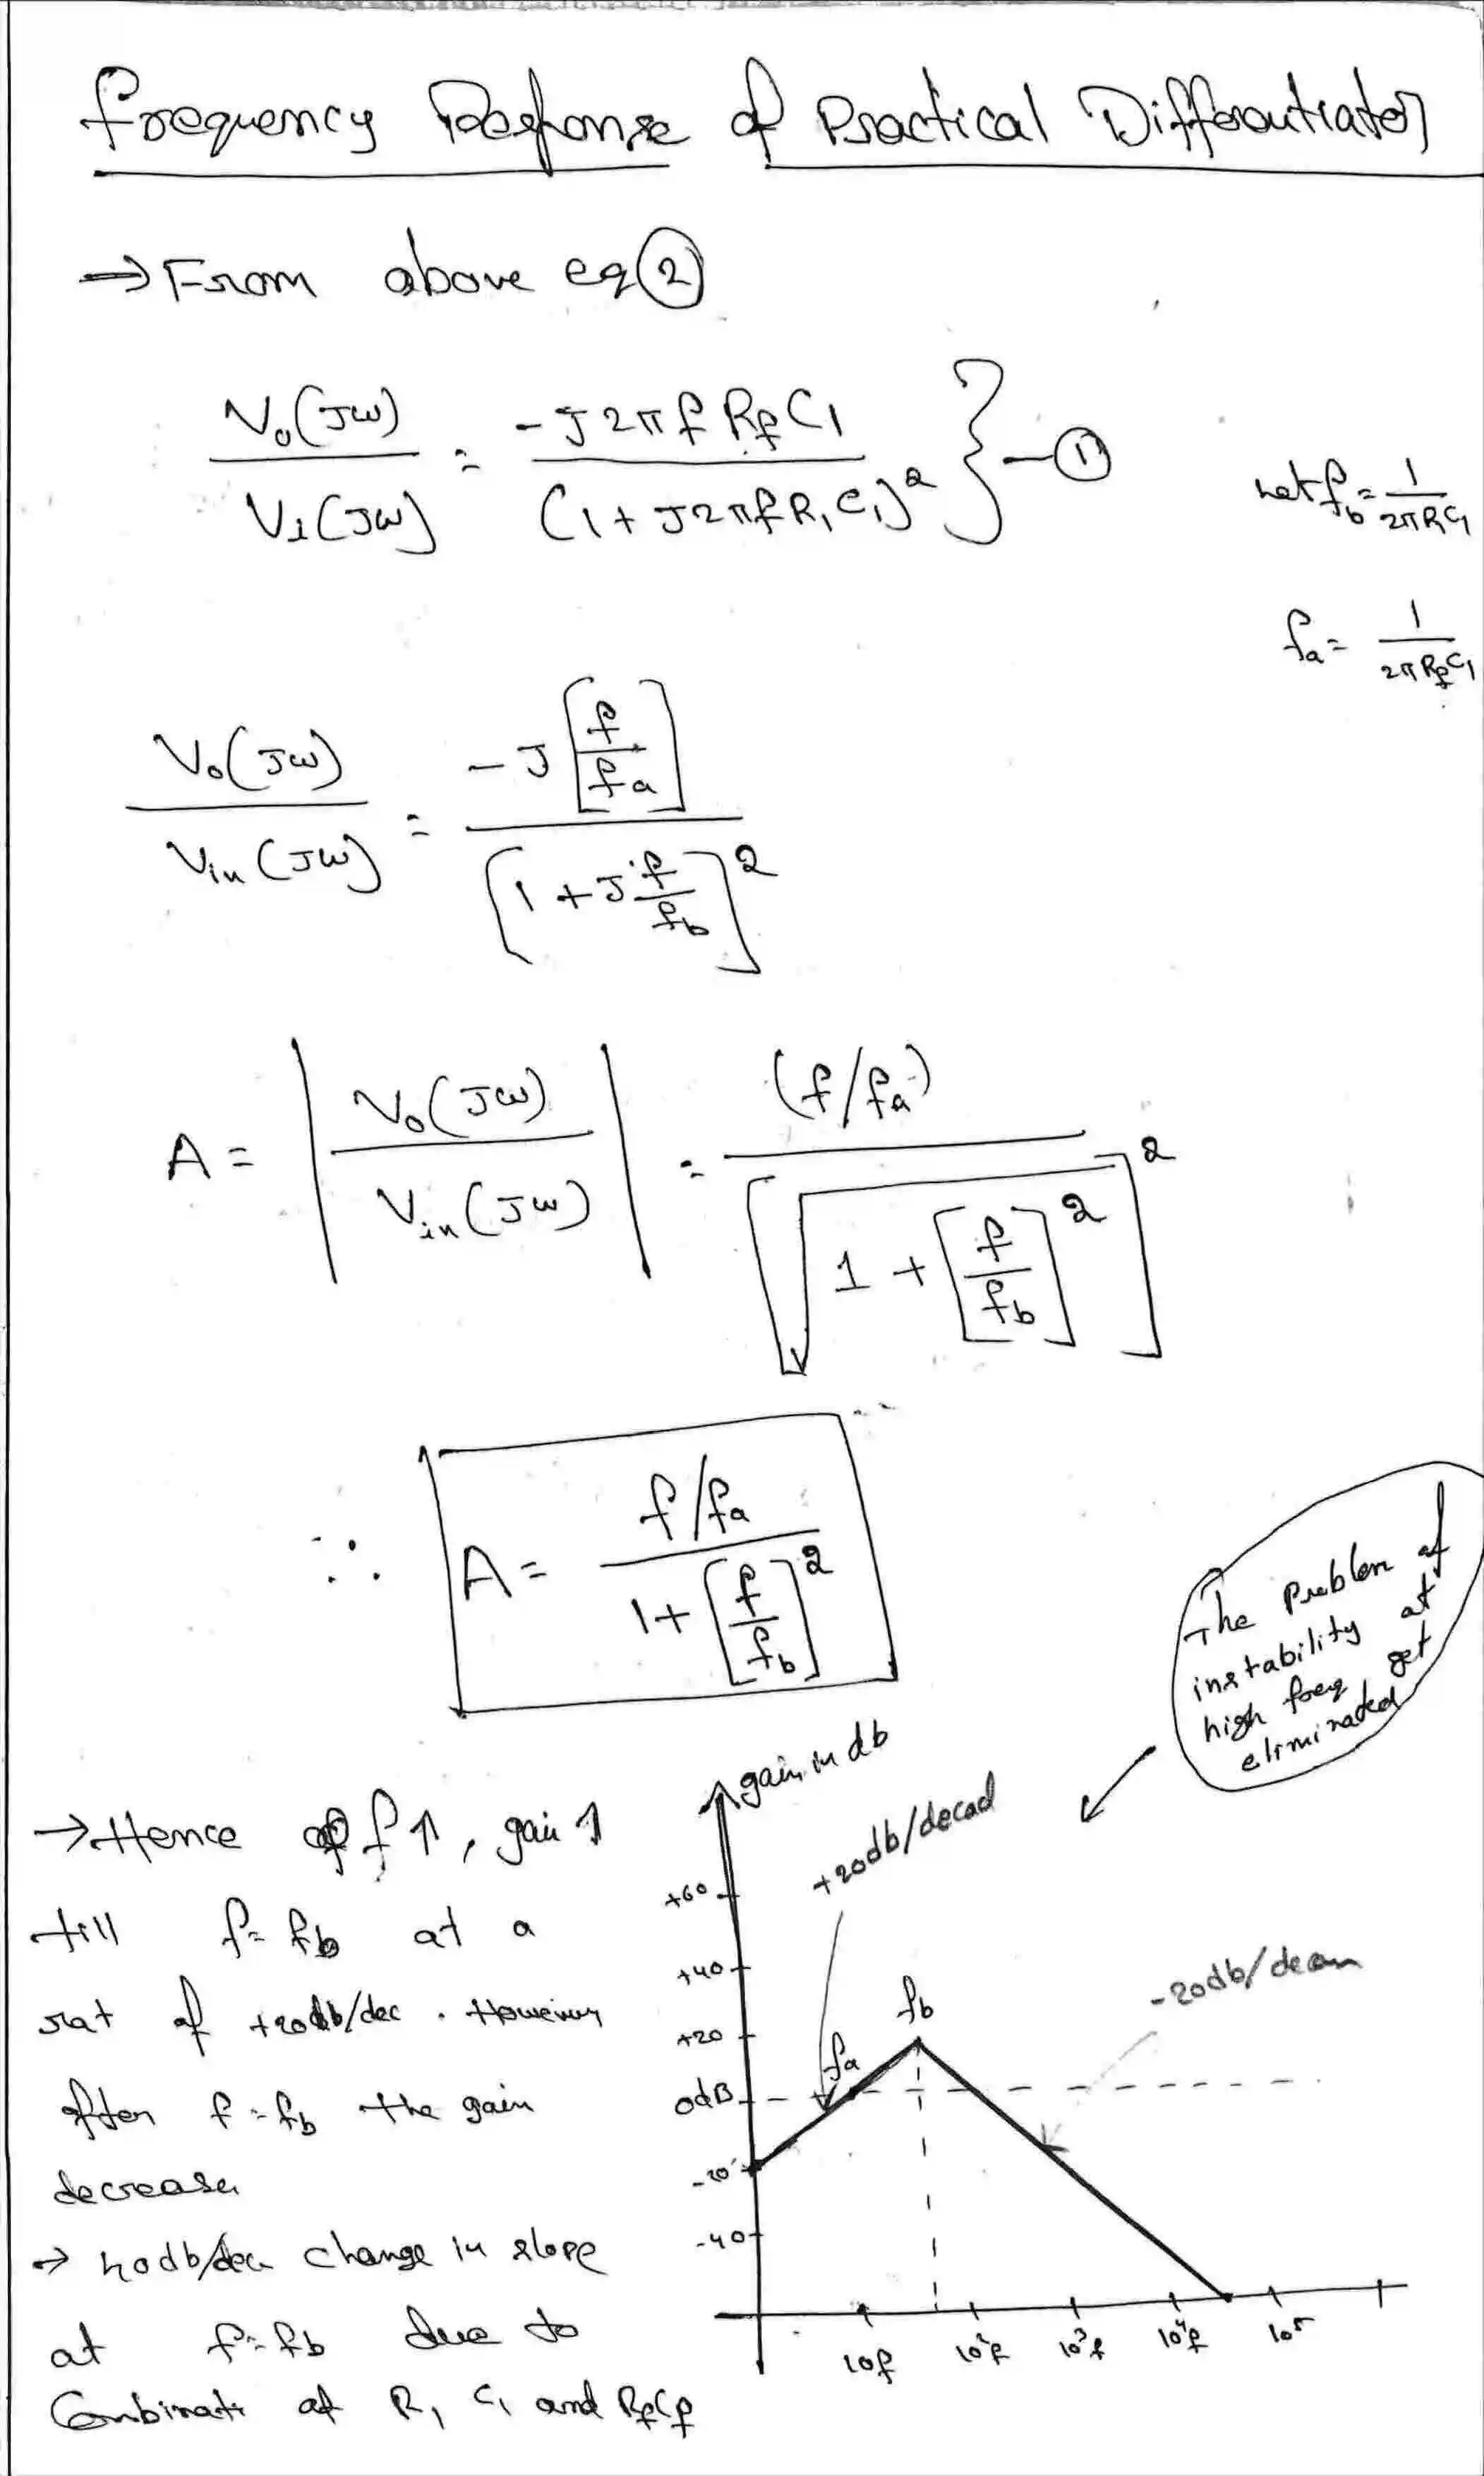 Frequency Response of Practical Differentiator
→ From above eq ②
Vo(Jω) / V1(Jω) = -J2πf RfC1 / (1+J2πfR1C1)² } — ①
Let fb = 1 / 2πR1C1
fa = 1 / 2πRfC1
Vo(Jω) / Vin(Jω) = -J[f/fa] / [1+J f/fb]²
A = | Vo(Jω) / Vin(Jω) | = (f/fa) / [√1+[f/fb]²]²
∴ A = f/fa / 1+[f/fb]²
The problem of
instability at
high freq get
eliminated
→ Hence f↑, gain ↑
till f = fb at a
rat of +20db/dec. However
after f = fb the gain
decrease
→ 40db/dec change in slope
at f = fb due to
Combinati of R1 C1 and RfCf
gain in db
+20db/decad
-20db/decan
+60
+40
+20
0dB
-20
-40
fa
fb
10f
10²f
10³f
10⁴f
10⁵